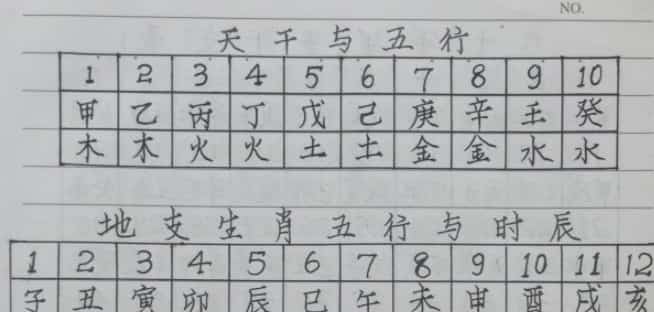 NO.
天干与五行
1 2 3 4 5 6 7 8 9 10
甲 乙 丙 丁 戊 己 庚 辛 壬 癸
木 木 火 火 土 土 金 金 水 水
地支生肖五行与时辰
1 2 3 4 5 6 7 8 9 10 11 12
子 丑 寅 卯 辰 巳 午 未 申 酉 戌 亥